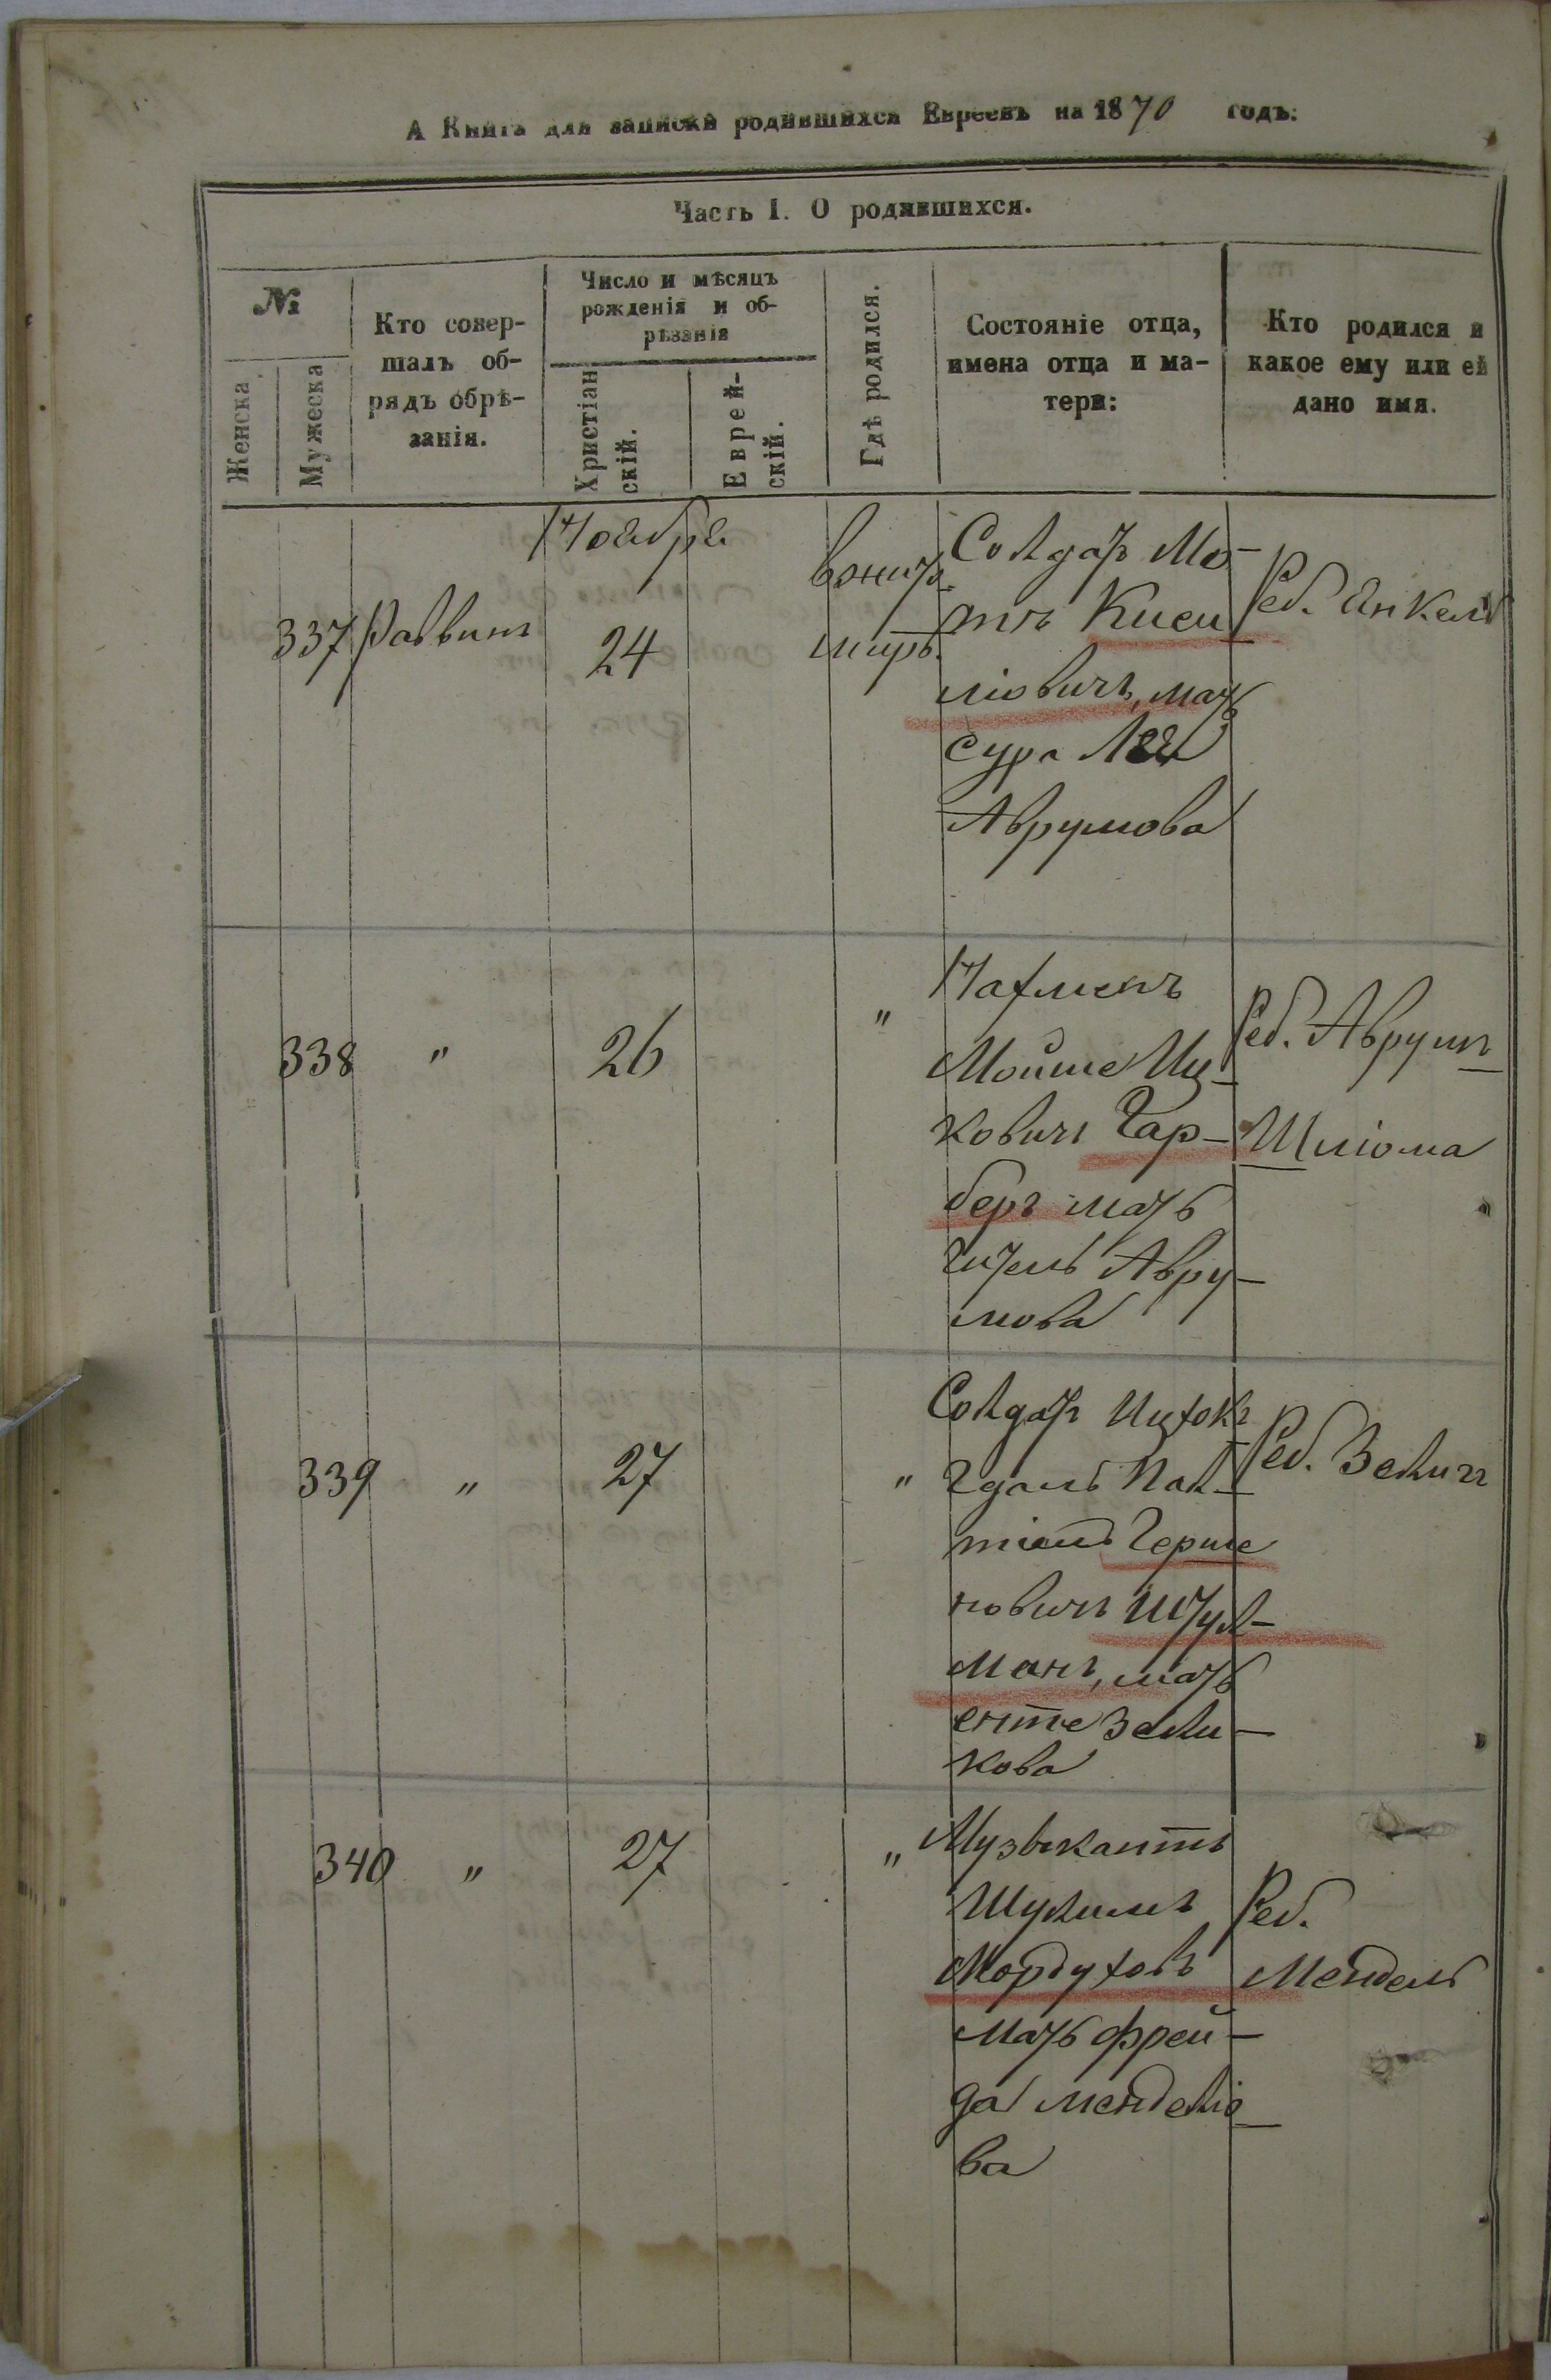 А Книга для записки родившихся Евреевъ на 1870 годъ:
Часть I. О родившихся.
№
Женска
Мужеска
Кто совер-
шалъ об-
рядъ обрѣ-
занія.
Число и мѣсяцъ
рожденія и об-
рѣзанія
Христіан
скій.
Еврей-
скій.
Гдѣ родился.
Состояніе отца,
имена отца и ма-
тери:
Кто родился и
какое ему или ей
дано имя.
Ноября
337 Раввинъ 24
въ Жито-
миръ.
Солдатъ Мо-
тъ Киси
ліовичъ, мать
Сура Лея
Аврумова
Реб. Янкель
338 " 26 "
Нахменъ
Мойше Иц-
ковичъ Гар-
беръ мать
Гитель Авру-
мова
Реб. Аврумъ
Шліома
339 " 27 "
Солдатъ Ицхокъ
Гдаль
Герше
новичъ Штул-
манъ, мать
Енте Зели-
кова
Реб. Зелигъ
340 " 27 "
Музыкантъ
Шулимъ
Мордуховъ
мать Фрей-
да Менделіо
ва
Реб.
Мендель